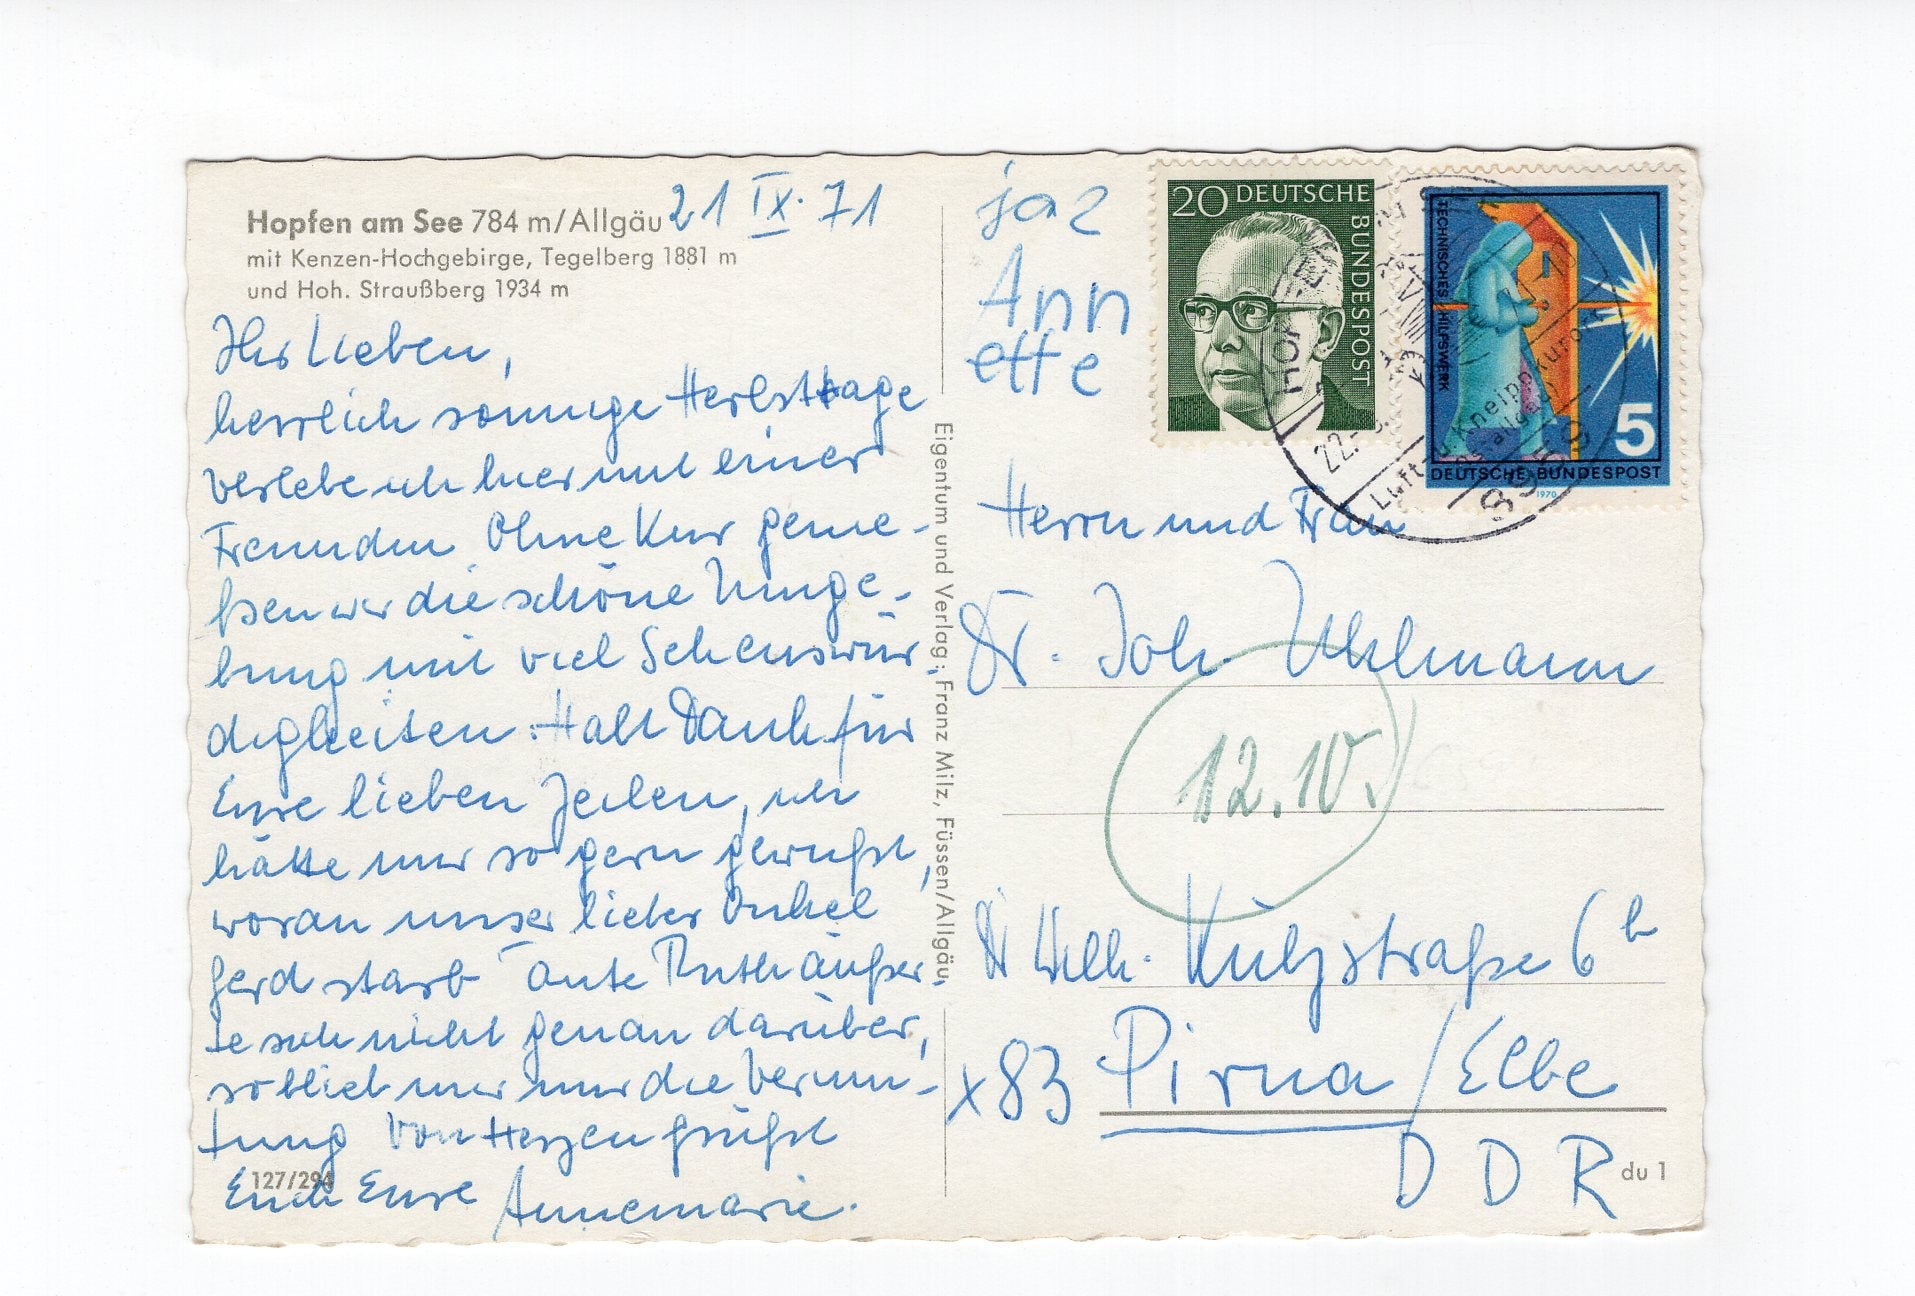 Hopfen am See 784 m/Allgäu
mit Kenzen-Hochgebirge, Tegelberg 1881 m
und Hoh. Straußberg 1934 m
21 IX. 71
Ihr Lieben,
herrlich sonnige Herbsttage
verlebe ich hier mit einer
Freundin Ohne Kur genie-
ßen wir die schöne Umge-
bung mit viel Sehenswür-
digkeiten. Habt Dank für
Eure lieben Zeilen, ich
hätte nur so gern gewußt,
woran unser lieber Onkel
Gerd starb Tante Ruth äußer-
te sich nicht genau darüber,
so blieb mir nur die Vermu-
tung Von Herzen grüßt
Euch Eure Annemarie.
127/294
Eigentum und Verlag: Franz Milz, Füssen/Allgäu
Ann
ette
20 DEUTSCHE
BUNDESPOST
TECHNISCHES HILFSWERK
5
DEUTSCHE BUNDESPOST
1970
22.-
Luft- u. Kneippkurort
Herrn und Frau
Dr. Joh. Uhlmann
12.10.
Wilh. Külzstraße 6 b
x83 Pirna/Elbe
DDR
du 1